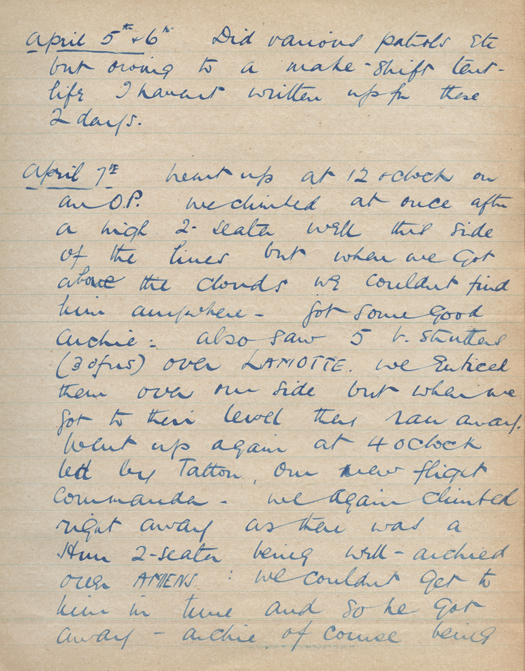 April 5th & 6th Did various patrols Etc
but owing to a make-shift tent-
life I havent written up for these
2 days.
April 7th Went up at 12 oclock on
an O.P. We climbed at once after
a high 2-seater well this side
of the lines but when we got
above the clouds we couldnt find
him anywhere - Got some good
Archie: also saw 5 V. Strutters
(3 of us) over LAMOTTE. We enticed
them over our side but when we
got to their level they ran away.
Went up again at 4 oclock
led by Tatton, our new flight
Commander - We again climbed
right away as there was a
Hun 2-seater being well-archied
over AMIENS: we couldnt get to
him in time and so he got
away - archie of course being